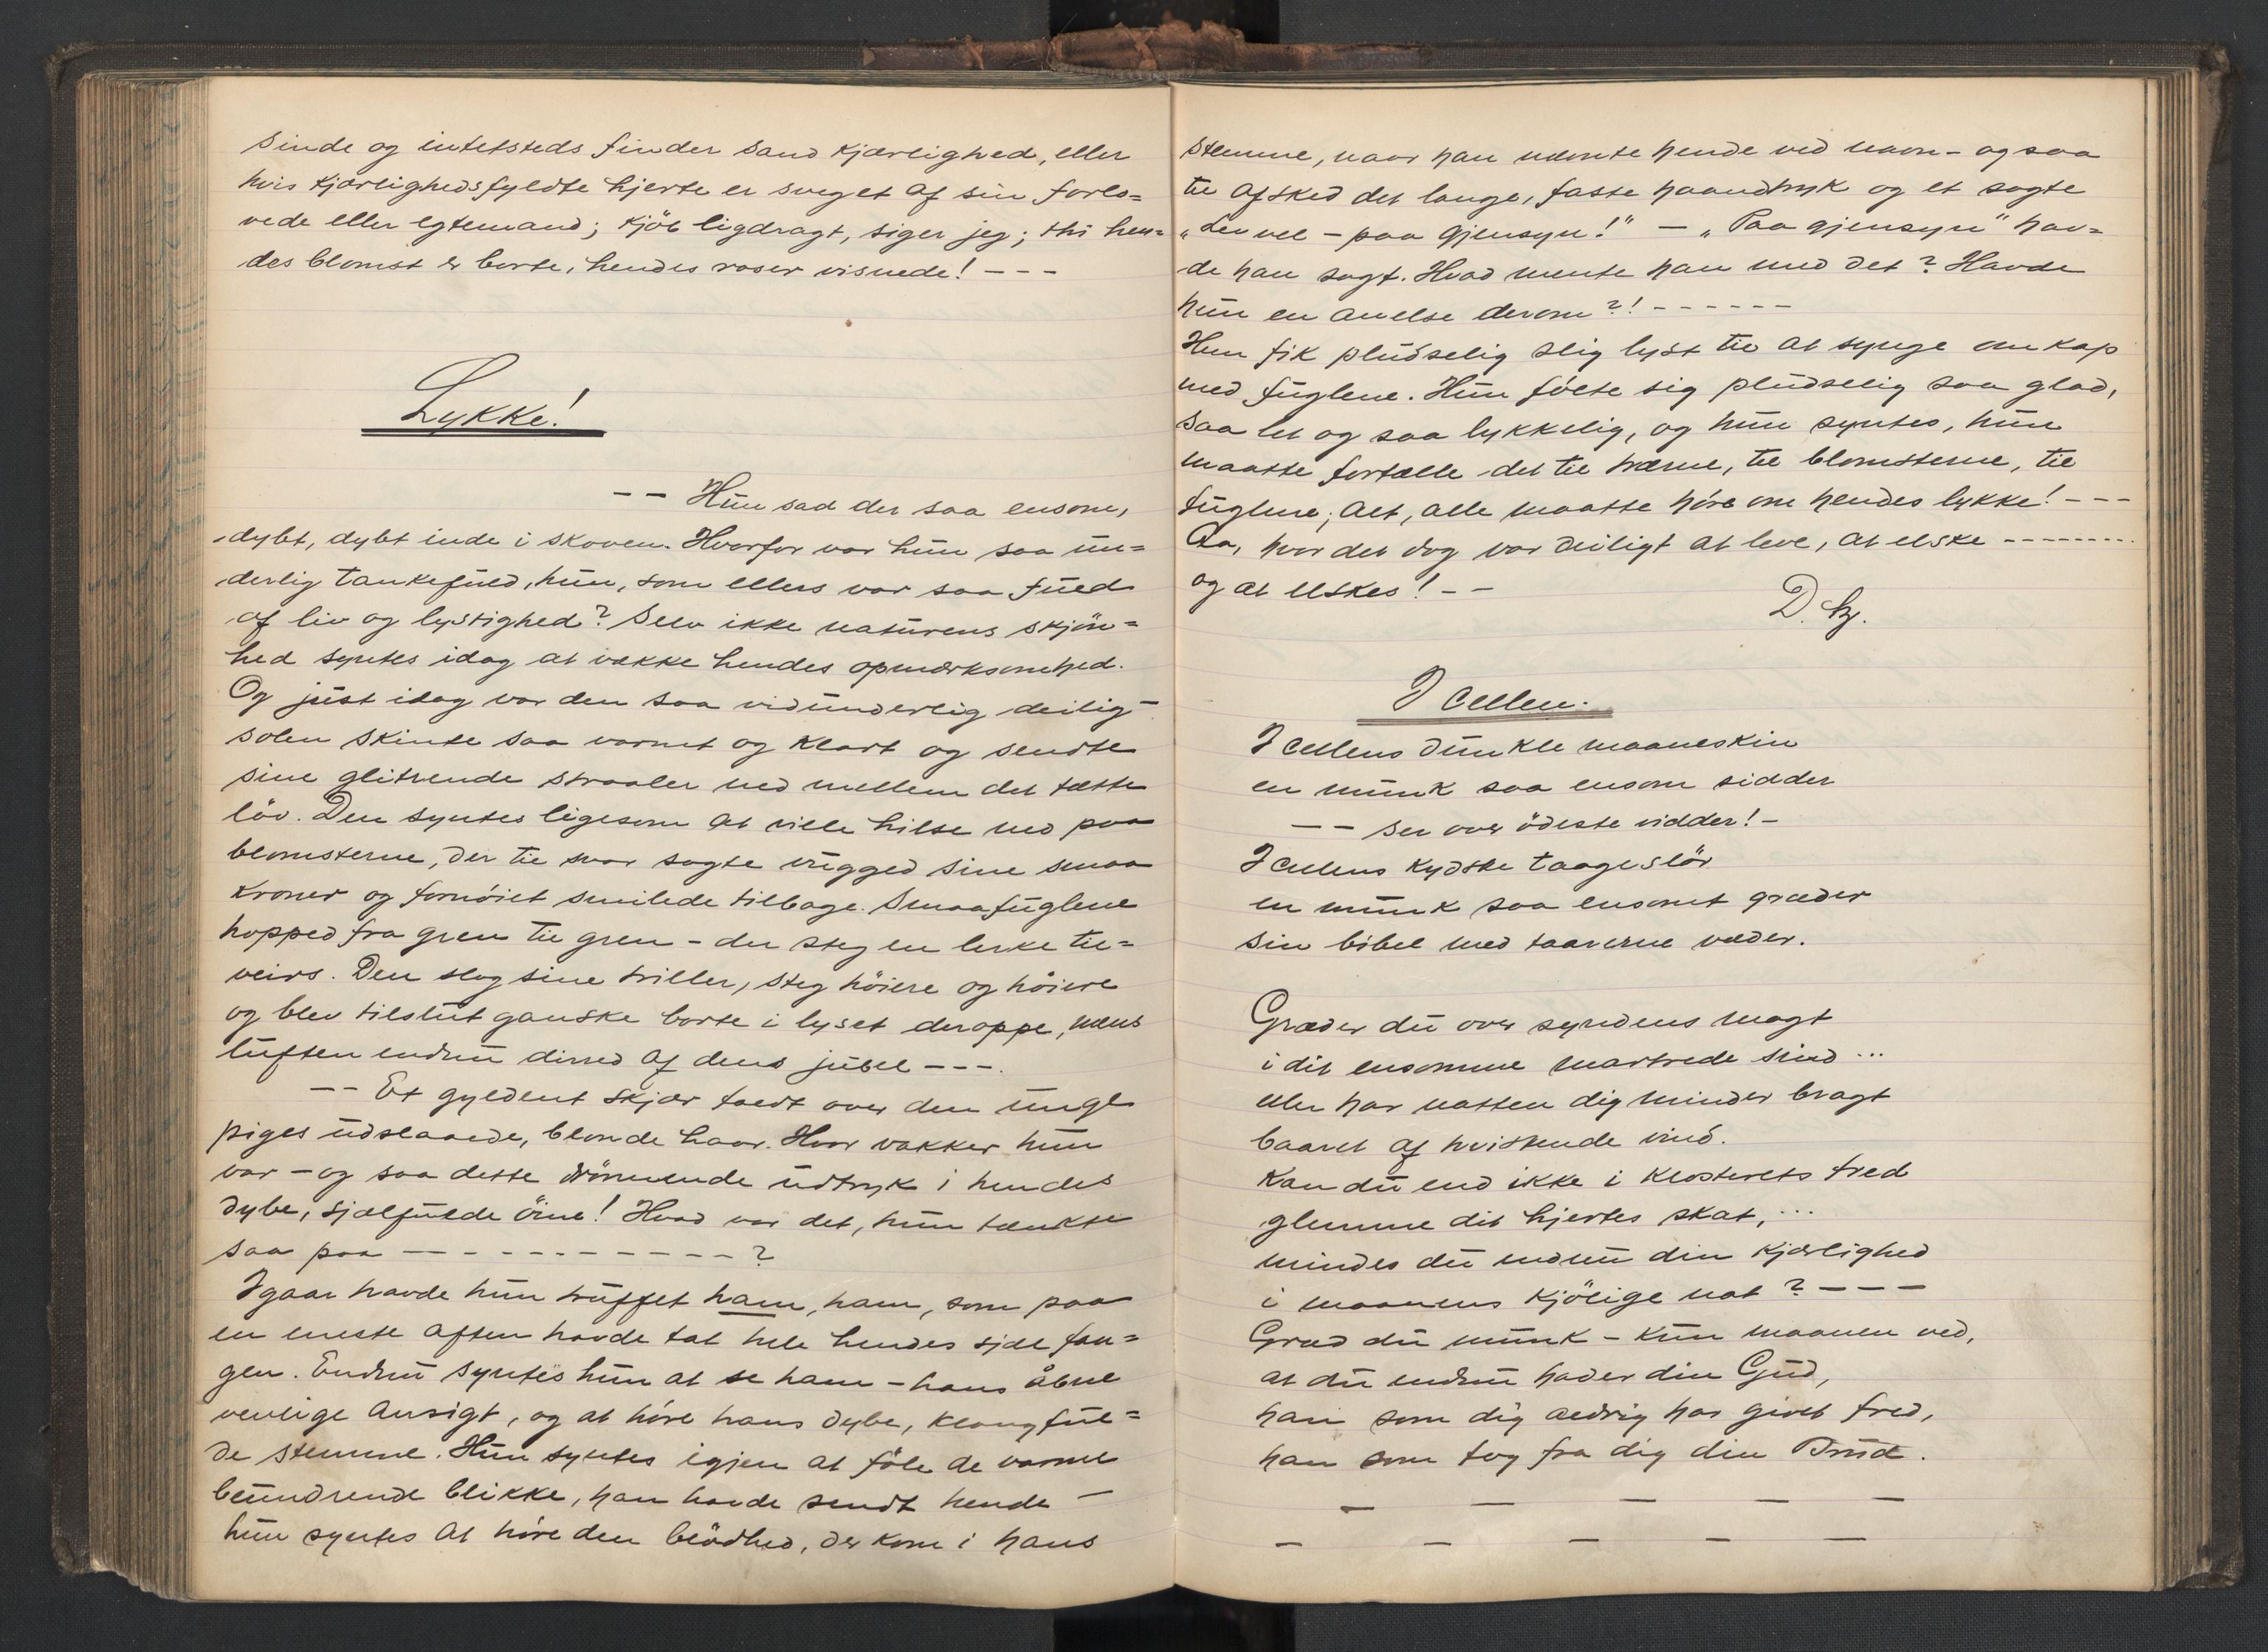 sinde og intetsteds finder sand kjærlighed, eller
hvis kjærlighedsfyldte hjerte er sveget af sin forlo=
vede eller egtemand; kjöb ligdragt, siger jeg; thi hen=
des blomst er borte, hendes roser visnede! - - -
Lykke!
- - Hun sad der saa ensom,
dybt, dybt inde i skoven. Hvorfor var hun saa un=
derlig tankefuld, hun, som ellers var saa fuld
af liv og lystighed? Selv ikke naturens skjön=
hed syntes idag at vække hendes opmærksomhed.
Og just idag var den saa vidunderlig deilig -
solen skinte saa varmt og klart og sendte
sine glitrende straaler ned mellem det tætte
löv. Den syntes ligesom at ville hilse ned paa
blomsterne, der til svar sagte vugged sine smaa
kroner og fornöiet smilede tilbage. Smaafuglene
hopped fra gren til gren - der steg en lerke til=
veirs. Den slog sine triller, steg höiere og höiere
og blev tilslut ganske borte i lyset deroppe, mens
luften endnu dirred af dens jubel - - -.
- - Et gyldent skjær faldt over den unge
piges udslaaede, blonde haar. Hvor vakker hun
var - og saa dette drömmende udtryk i hendes
dybe, sjælfulde öine! Hvad var det, hun tænkte
saa paa - - - - - - - - - - - ?
Igaar havde hun truffet ham, ham, som paa
en eneste aften havde tat hele hendes sjæl fan=
gen. Endnu syntes hun at se ham - hans åbne
venlige ansigt, og at höre hans dybe, klangful=
de stemme. Hun syntes igjen at föle de varme
beundrende blikke, han havde sendt hende -
hun syntes at höre den blödhed, der kom i hans
stemme, naar han nævnte hende ved navn - og saa
til afsked det lange, faste haandtryk og et sagte
„Lev vel - paa gjensyn!" - „Paa gjensyn" hav=
de han sagt. Hvad mente han med det? Havde
hun en anelse derom?! - - - - - -
Hun fik pludselig slig lyst til at synge om kap
med fuglene. Hun fölte sig pludselig saa glad,
saa let og saa lykkelig, og hun syntes, hun
maatte fortælle det til trærne, til blomsterne, til
fuglene; alt, alle maatte höre om hendes lykke! - - -
Aa, hvor det dog var deiligt at leve, at elske - - - - - - - -
og at elskes! - -
D.
I cellen.
I cellens dunkle maaneskin
en munk saa ensom sidder
- - ser over ödeste vidder! -
I cellens kydske taageslör
en munk saa ensomt græder
sin bibel med taarerne væder.
Græder du over syndens magt
i dit ensomme martrede sind ...
eller har natten dig minder bragt
baaret af hviskende vind.
Kan du end ikke i klosterets fred
glemme dit hjertes skat, ...
mindes du endnu din kjærlighed
i maanens kjölige nat? - - -
Græd du munk - kun maanen ved,
at du endnu hader din Gud,
han som dig aldrig har givet fred,
han som tog fra dig din Brud.
- - - - -
- - - - -